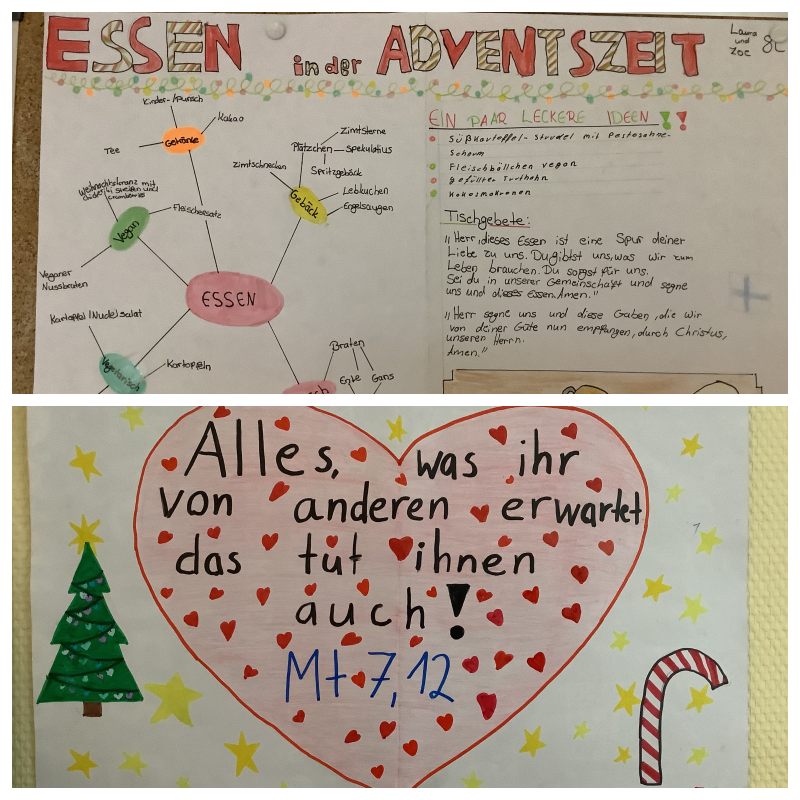 ESSEN in der ADVENTSZEIT
Laura
und
Zoe 8c
Kinder-/Punsch
Kakao
Tee
Getränke
Zimtsterne
Plätzchen
Spekulatius
Spritzgebäck
Zimtschnecken
Gebäck
Lebkuchen
Engelsaugen
Fleischersatz
Vegan
Veganer
Nussbraten
ESSEN
Kartoffel/Nudelsalat
Vegetarisch
Kartoffeln
Braten
Ente
Gans
EIN PAAR LECKERE IDEEN !!
Süßkartoffel-Strudel mit Pestosahne-
Schaum
Fleischbällchen vegan
gefüllter Truthahn
Kokosmakronen
Tischgebete:
„Herr, dieses Essen ist eine Spur deiner
Liebe zu uns. Du gibst uns, was wir zum
Leben brauchen. Du sorgst für uns.
Sei du in unserer Gemeinschaft und segne
uns und dieses Essen. Amen."
„Herr segne uns und diese Gaben, die wir
von deiner Güte nun empfangen, durch Christus,
unseren Herrn.
Amen."
Alles, was ihr
von anderen erwartet
das tut ihnen
auch!
Mt 7,12